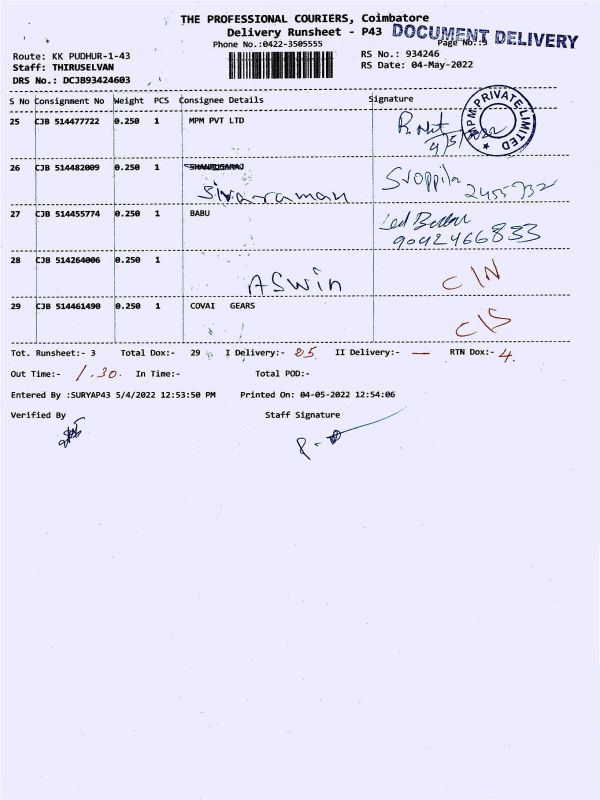 THE PROFESSIONAL COURIERS, Coimbatore
Delivery Runsheet - P43 DOCUMENT DELIVERY
Phone No.:0422-3505555 Page No.:3
Route: KK PUDHUR-1-43 RS No.: 934246
Staff: THIRUSELVAN RS Date: 04-May-2022
DRS No.: DCJB93424603
S No Consignment No Weight PCS Consignee Details Signature
25 CJB 514477722 0.250 1 MPM PVT LTD
4/5/2022
MPM PRIVATE LIMITED
26 CJB 514482009 0.250 1 SHANMUGARAJ
Sivaraman 2455732
27 CJB 514455774 0.250 1 BABU
9042466833
28 CJB 514264006 0.250 1
ASwin C/N
29 CJB 514461490 0.250 1 COVAI GEARS
C/S
Tot. Runsheet:- 3 Total Dox:- 29 I Delivery:- 25 II Delivery:- — RTN Dox:- 4.
Out Time:- 1.30. In Time:- Total POD:-
Entered By :SURYAP43 5/4/2022 12:53:50 PM Printed On: 04-05-2022 12:54:06
Verified By Staff Signature